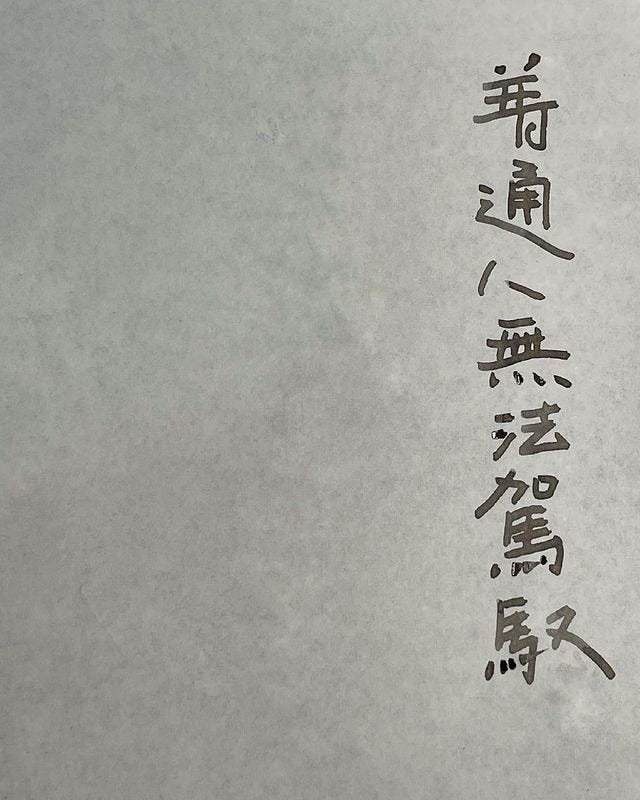 普通人無法駕馭